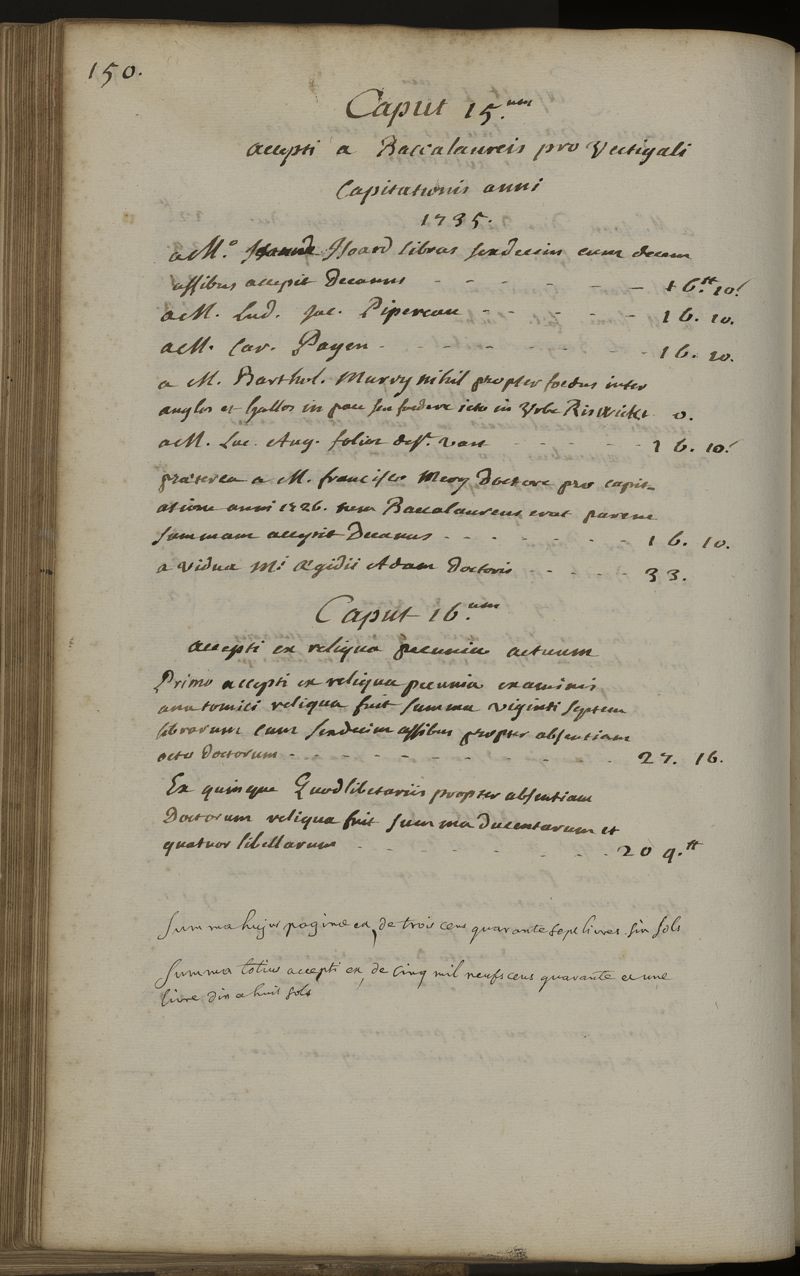 150.
Caput 15.um
accepti a Baccalaureis pro Vectigali
Capitationis anni
1735.
a M.o Hoard libras sexdecim cum decem
assibus accepit Decanus - - - - - - 16.tt 10.s
a M. Lud. Jac. Pipereau - - - - - - 16. 10.
a M. Car. Payen - - - - - - - - 16. 10.
a M. Barthol. Murry nihil propter foedus inter
anglos et Gallos in pace seu foedere icto in Urbe Riswick 0.
a M. Luc. Aug. folior des.t van - - - - - 16. 10.s
praeterea a M. francisco Mery Doctore pro capit-
atione anni 1726. tum Baccalaureus erat parem
summam accepit Decanus - - - - - - - 16. 10.
a vidua M.i Ægidii Adam Doctoris - - - - - 33.
Caput 16.um
accepti ex reliqua pecunia actuum
Primo accepti ex reliqua pecunia examinis
anatomici reliqua fuit summa viginti septem
librarum cum sexdecim assibus propter absentiam
octo Doctorum - - - - - - - - - - - 27. 16.
Ex quinque Quodlibetariis propter absentiam
Doctorum reliqua fuit summa ducentarum et
quatuor libellarum - - - - - - - - 204.tt
Summa hujus paginæ ex, de trois cens quarante sept livres six sols
Summa totius accepti ex, de Cinq mil neufs cens quarante et une
livre dix a huit sols